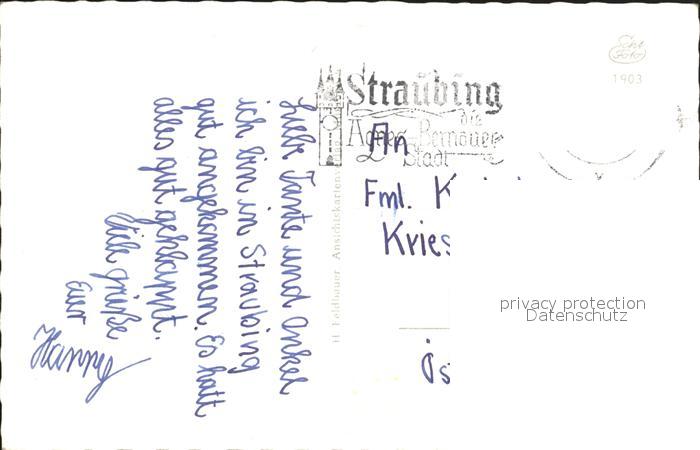 Liebe Tante und Onkel
ich bin in Straubing
gut angekommen. Es hatt
alles gut geklappt.
Viele Grüße
Euer
Hanny
H. Feldbauer Ansichtskarten
Straubing
die
Agnes-Bernauer
Stadt
Echt
Foto
1903
An
Fml. K
Kries
privacy protection
Datenschutz